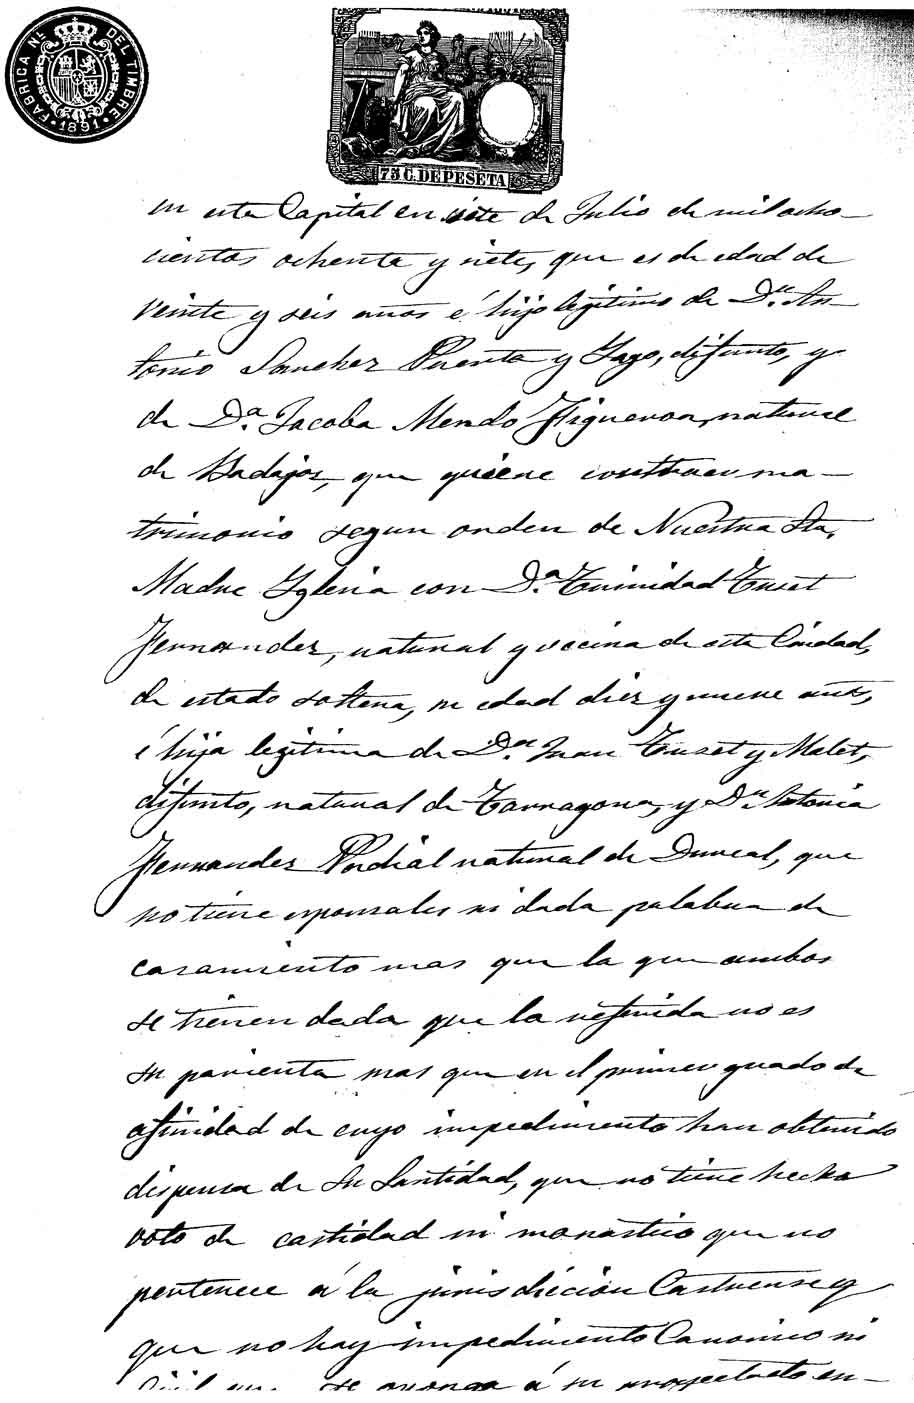 FABRICA NL. DEL TIMBRE
1891
75 C. DE PESETA
en esta Capital en siete de Julio de mil ocho-
cientos ochenta y siete, que es de edad de
veinte y seis años é hijo legitimo de Dn. An-
tonio Sanchez Puerta y Gago, difunto, y
de Da. Jacoba Mendo Figueroa, natural
de Badajoz, que quiere contraer ma-
trimonio segun orden de Nuestra Sta.
Madre Yglesia con Da. Trinidad Tuset
Fernandez, natural y vecina de esta Ciudad,
de estado soltera, su edad diez y nueve años,
é hija legitima de Dn. Juan Tuset y Malet,
difunto, natural de Tarragona, y Da. Antonia
Fernandez Pordial natural de Durcal, que
no tiene esponsales ni dada palabra de
casamiento mas que la que ambos
se tienen dada que la referida no es
su parienta mas que en el primer grado de
afinidad de cuyo impedimento han obtenido
dispensa de Su Santidad, que no tiene hecho
voto de castidad ni monastico que no
pertenece á la jurisdiccion Castrense y
que no hay impedimento Canonico ni
Civil que se oponga á su proyectado en-